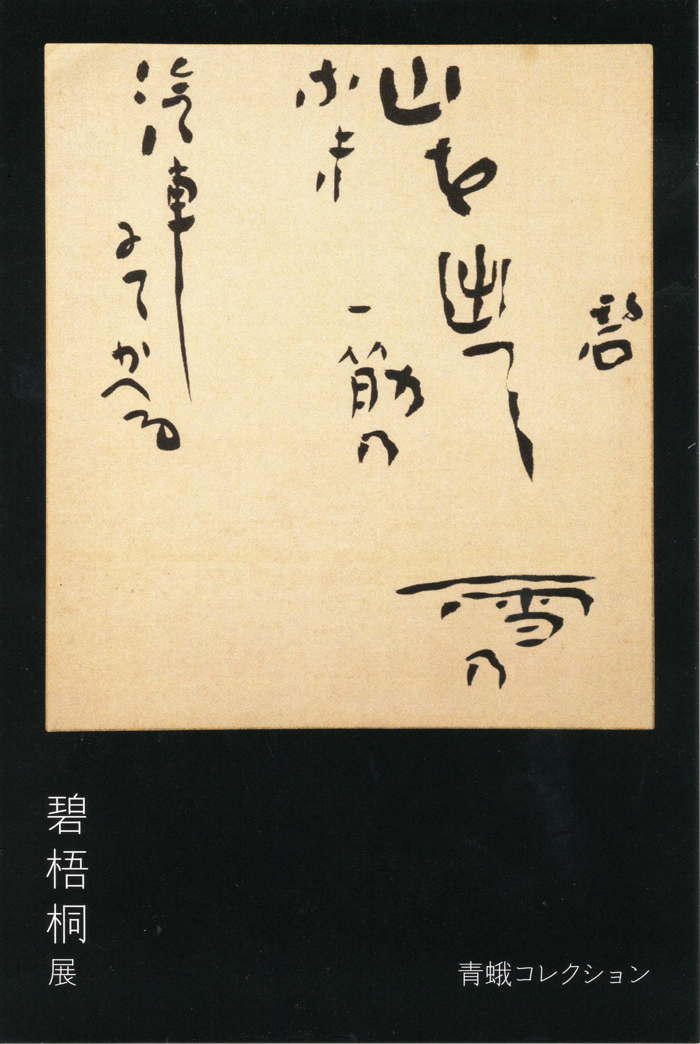 碧
山を出て
雪乃
一筋乃
汽車
にてかへる
碧梧桐展
青蛾コレクション